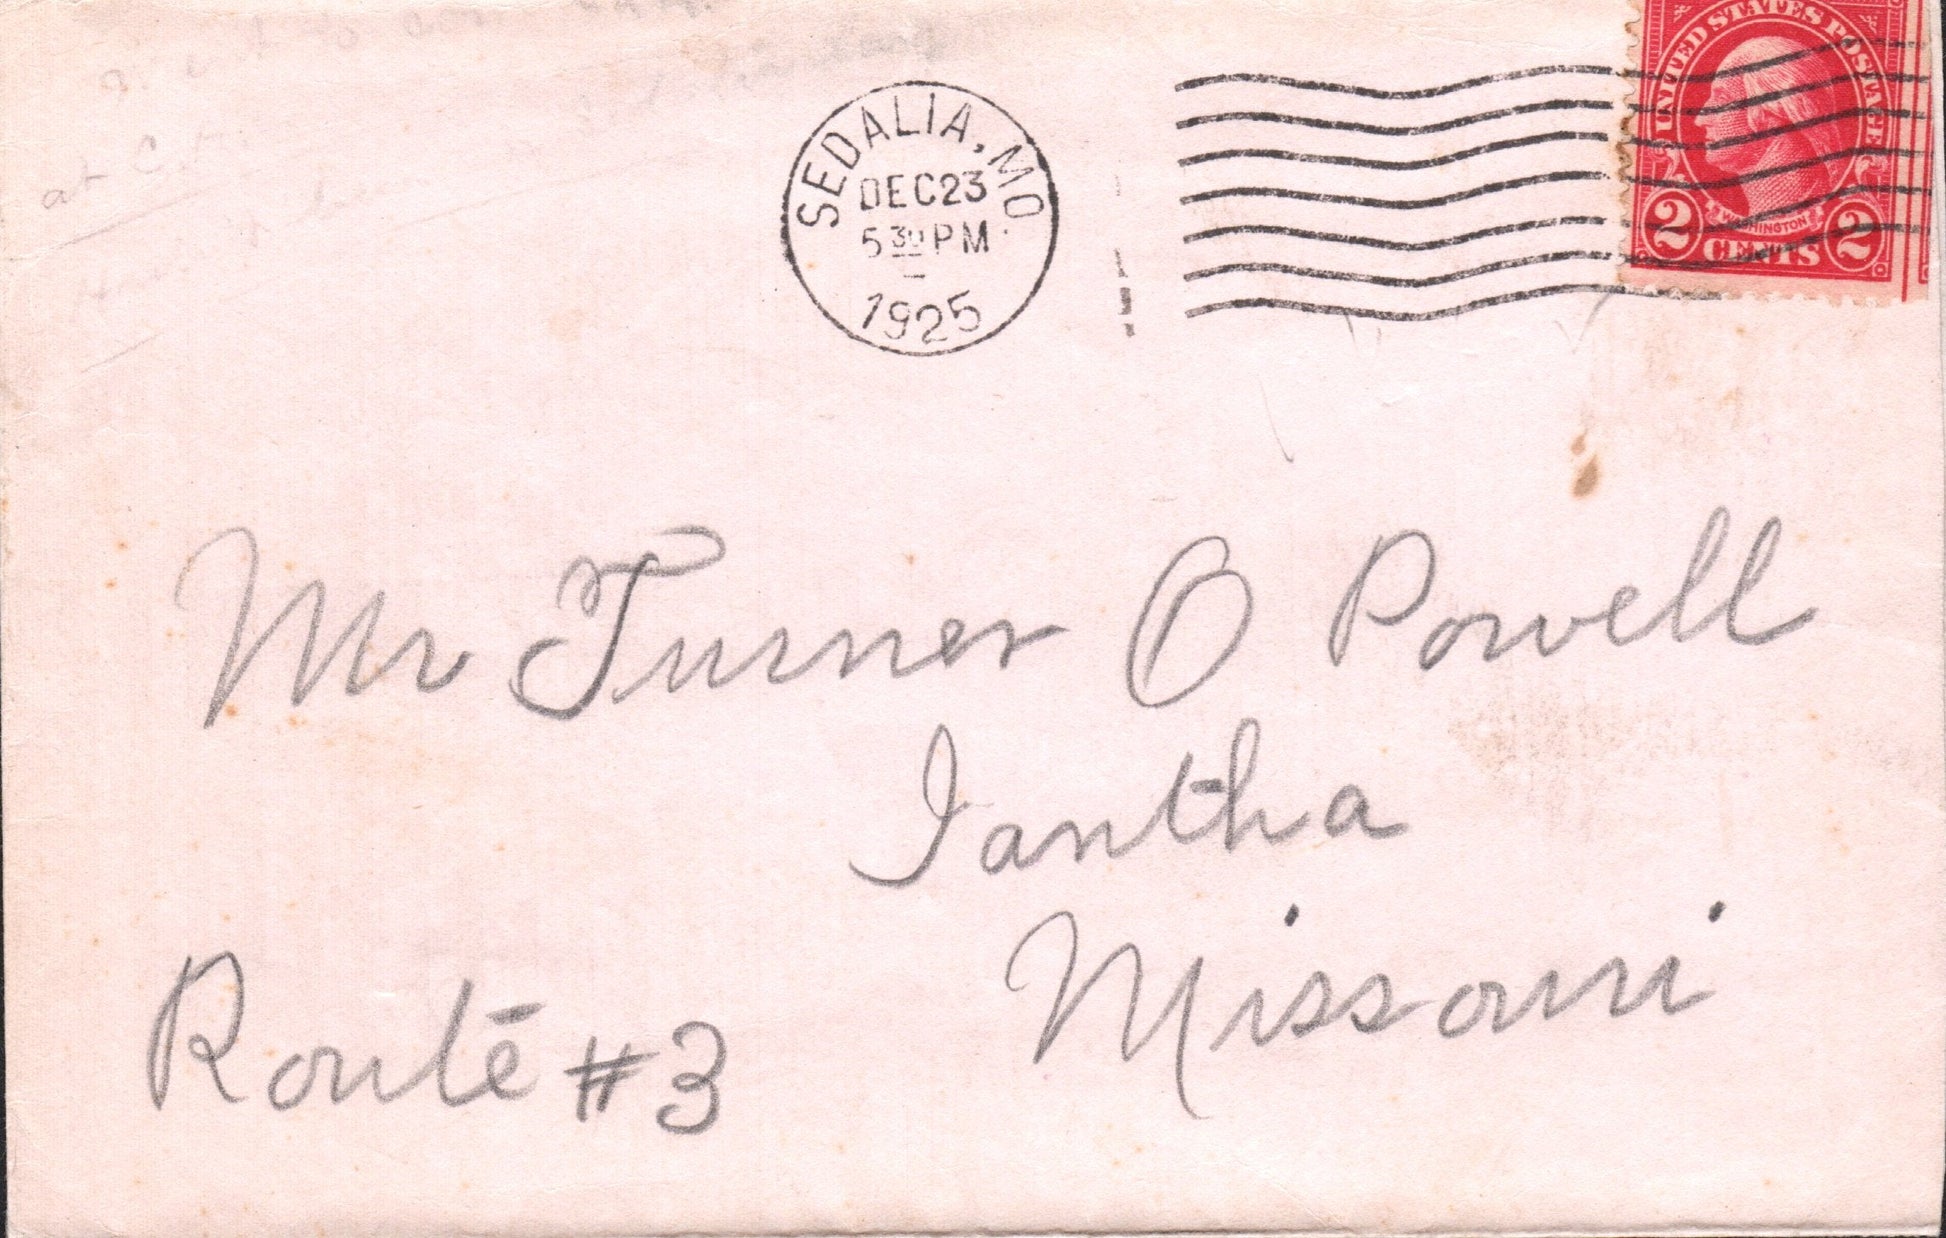 at
SEDALIA, MO.
DEC 23
5 30 PM
1925
UNITED STATES POSTAGE
WASHINGTON
2 CENTS 2
Mr Turner O Powell
Iantha
Missouri
Route #3